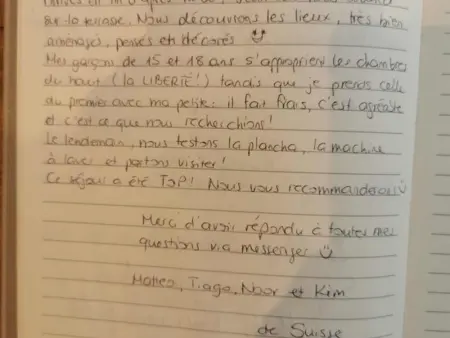 sur la terrasse. Nous découvrons les lieux, très bien
aménagés, pensés et décorés
Mes garçons de 15 et 18 ans s'approprient les chambres
du haut (la LIBERTÉ!) tandis que je prends celle
du premier avec ma petite: il fait frais, c'est agréable
et c'est ce que nous recherchions!
Le lendemain, nous testons la plancha, la machine
à laver et partons visiter!
Ce séjour a été TOP! Nous vous recommanderons
Merci d'avoir répondu à toutes mes
questions via messenger
Tiago, Noor et Kim
de Suisse